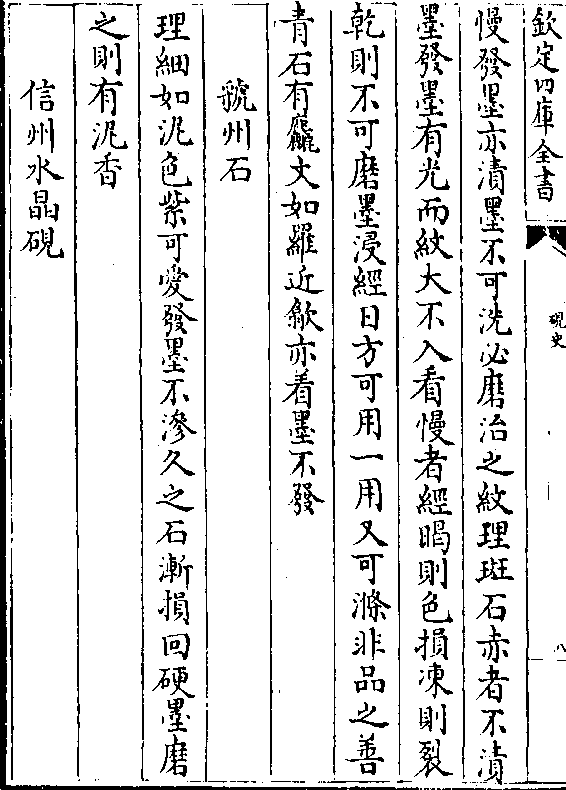 欽定四庫全書
硯史
八
慢發墨亦漬墨不可洗必磨治之紋理斑石赤者不漬
墨發墨有光而紋大不入看慢者經暍則色損凍則裂
乾則不可磨墨浸經日方可用一用又可滌非品之善
青石有麤文如羅近歙亦着墨不發
虢州石
理細如泥色紫可愛發墨不滲久之石漸損回硬墨磨
之則有泥香
信州水晶硯